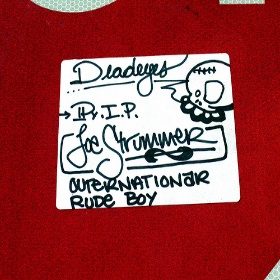 Deadeyes
→ R.I.P.
Joe Strummer
OUTERNATIONAR
RUDE BOY